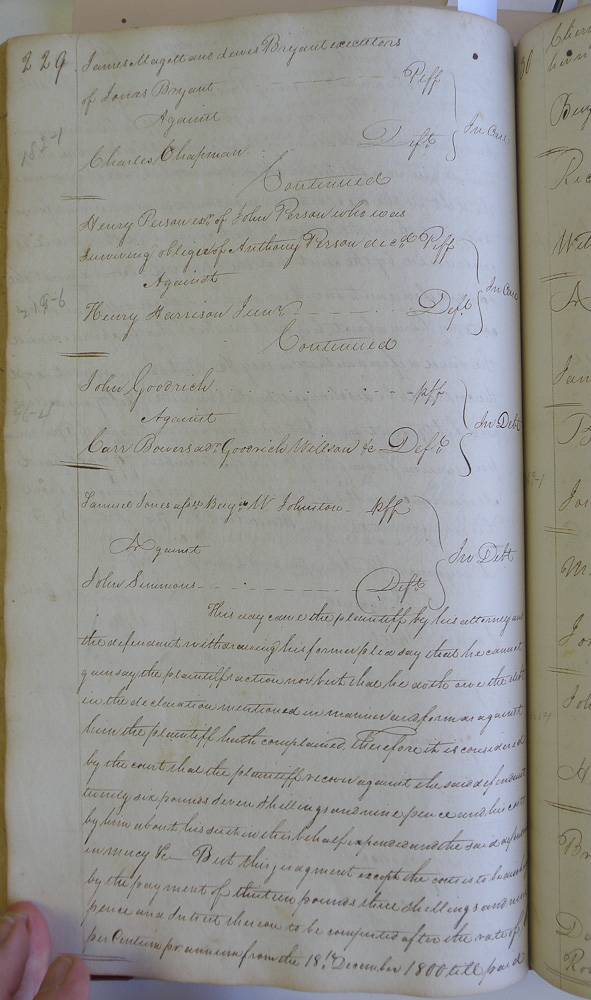 229
James Magett and Lewis Bryant executors
of Jonas Bryant Plff
Against In Case
Charles Chapman Deft
Continued
Henry Person exr of John Person who was
surviving obligee of Anthony Person decd Plff
Against In Case
Henry Harrison Junr Deft
Continued
John Goodrich plff
Against In Debt
Carr Bowers adr Goodrich Willson &c Deft
Samuel Jones assee Benjn W Johnston plff
Against In Debt
John Simmons Deft
This day came the plaintiff by his attorney and
the defendant withdrawing his former plea say that he cannot
gainsay the plaintiff action nor but that he doth owe the debt
in the declaration mentioned in manner and form as against
him the plaintiff hath complained, Therefore it is considered
by the court that the plaintiff recover against the said defendant
twenty six pounds seven shillings and nine pence and his costs
by him about his suit in this behalf expended and the said defendant
in mercy &c But this judgment except the costs is to be
by the payment of thirteen pounds three shillings and
pence and Interest thereon to be computed after the rate of
per Centum pr annum from the 18th December 1800 till paid